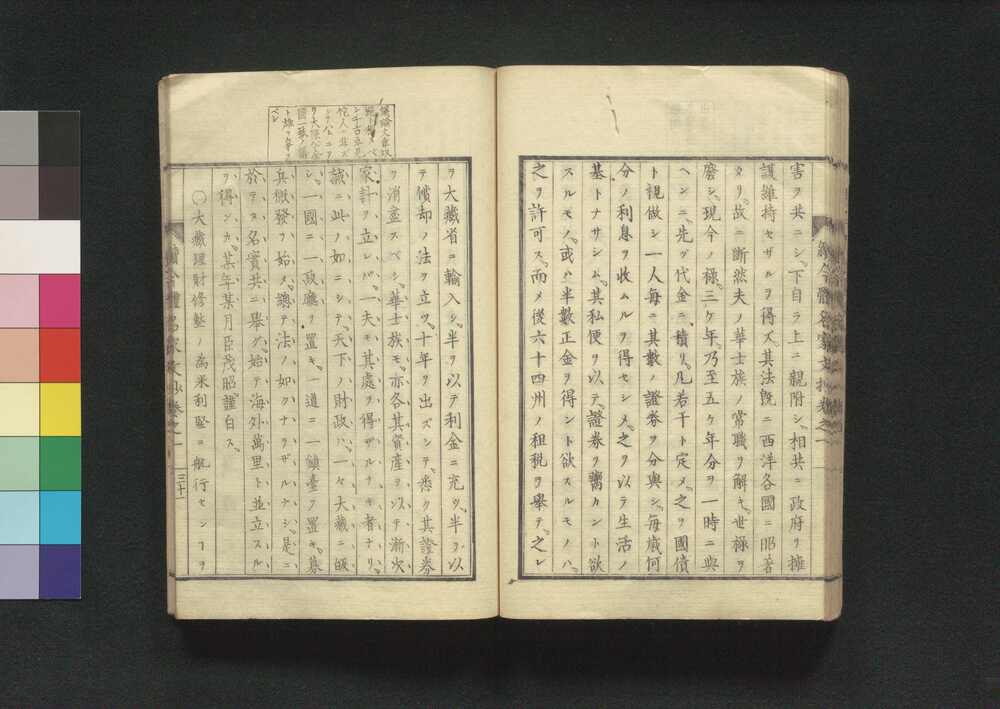 害ヲ共ニシ下自ラ上ニ親附シ相共ニ政府ヲ擁
護維持セザルヲ得ズ其法既ニ西洋各國ニ昭著
タリ故ニ斷然夫ノ華士族ノ常職ヲ解キ世祿ヲ
廢シ現今ノ祿三ケ年乃至五ケ年分ヲ一時ニ與
ヘンニ先ヅ代金ニ積リ凡若干ト定メ之ヲ國債
ト視做シ一人毎ニ其數ノ證券ヲ分與シ毎歳何
分ノ利息ヲ收ムルヲ得セシメ之ヲ以テ生活ノ
基トナサシム其私便ヲ以テ證券ヲ鬻カント欲
スルモノ或ハ半數正金ヲ得ント欲スルモノハ
之ヲ許可ス而メ後六十四州ノ租税ヲ舉テ之レ
ヲ大藏省ニ輸入シ半ヲ以テ利金ニ充ツ半ヲ以
テ償却ノ法ヲ立ツ十年ヲ出ズシテ悉ク其證券
ヲ消盡スベシ華士族モ亦各其資產ヲ以テ漸次
家計ヲ立レバ一夫モ其處ヲ得ザルナキ者ナリ
誠ニ此ノ如ニシテ天下ノ財政ハ一々大藏ニ皈
シ一國ニ一政廳ヲ置キ一道ニ一鎭臺ヲ置キ募
兵徴發ヲ始メ總テ法ノ如クナラザルナシ是ニ
於テヌ名實共ニ舉ゲ始テ海外萬里ト並立スル
ヲ得ンカ某年某月臣茂昭謹白ス
〇大藏理財修整ノ爲米利堅ニ航行センコヲ
三十